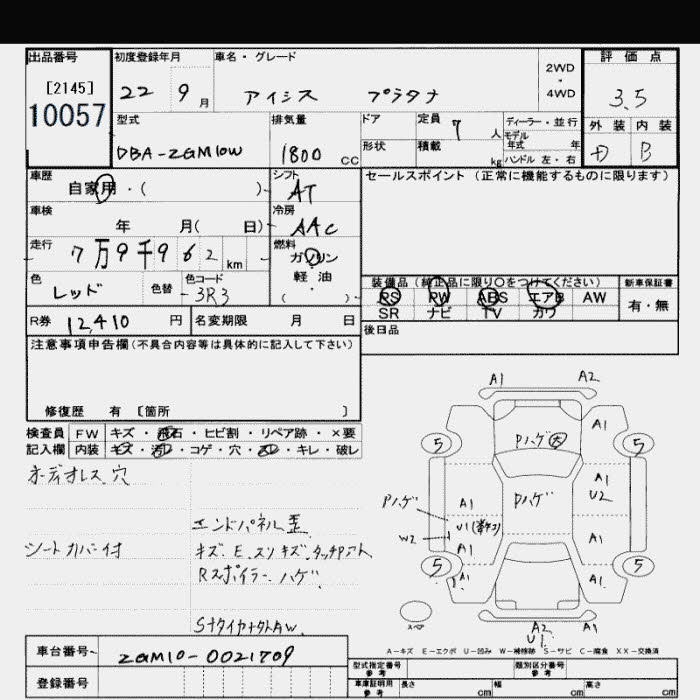 出品番号 初度登録年月 車名・グレード 評価点
[2145] 22 9月 アイシス プラタナ 2WD・4WD 3.5
10057
型式 排気量 ドア 定員 7人 ディーラー・並行 外装 内装
DBA-ZGM10W 1800 CC 形状 積載 kg モデル年式 年 B
ハンドル 左・右
車歴 シフト セールスポイント(正常に機能するものに限ります)
自家用・( ) AT
車検 冷房
年 月( 日) AAC
走行 燃料
7万9千962km ガソリン
軽・油
( )
色 色替 色コード 装備品(純正品に限り○をつけてください) 新車保証書
レッド 3R3 PS PW ABS エアB AW 有・無
SR ナビ TV カワ
R券 12,410円 名変期限 月 日 後日品
注意事項申告欄(不具合内容等は具体的に記入して下さい)
修復歴 有 [箇所 ]
検査員 FW キズ・飛石・ヒビ割・リペア跡・×要
記入欄 内装 キズ・汚レ・コゲ・穴・スレ・キレ・破レ
オーディオレス、穴
エンドパネル歪
シートカバー付 キズ、E、スリキズ、タッチアト
Rスポイラーハゲ
SナタイヤナットAW
A1 A2
A1
5 Pハゲ 大 5
A1
U2
Pハゲ A1 Pハゲ
U1
W2 A1 A1
5 A1 A1 5
スペア
A2
U1
A-キズ E-エクボ U-凹み W-補修跡 S-サビ C-腐食 XX-交換済
車台番号 ZGM10-0021709
型式指定番号 参考 類別区分番号 参考
登録番号 車庫証明用 参考 長さ cm 幅 cm 高さ cm